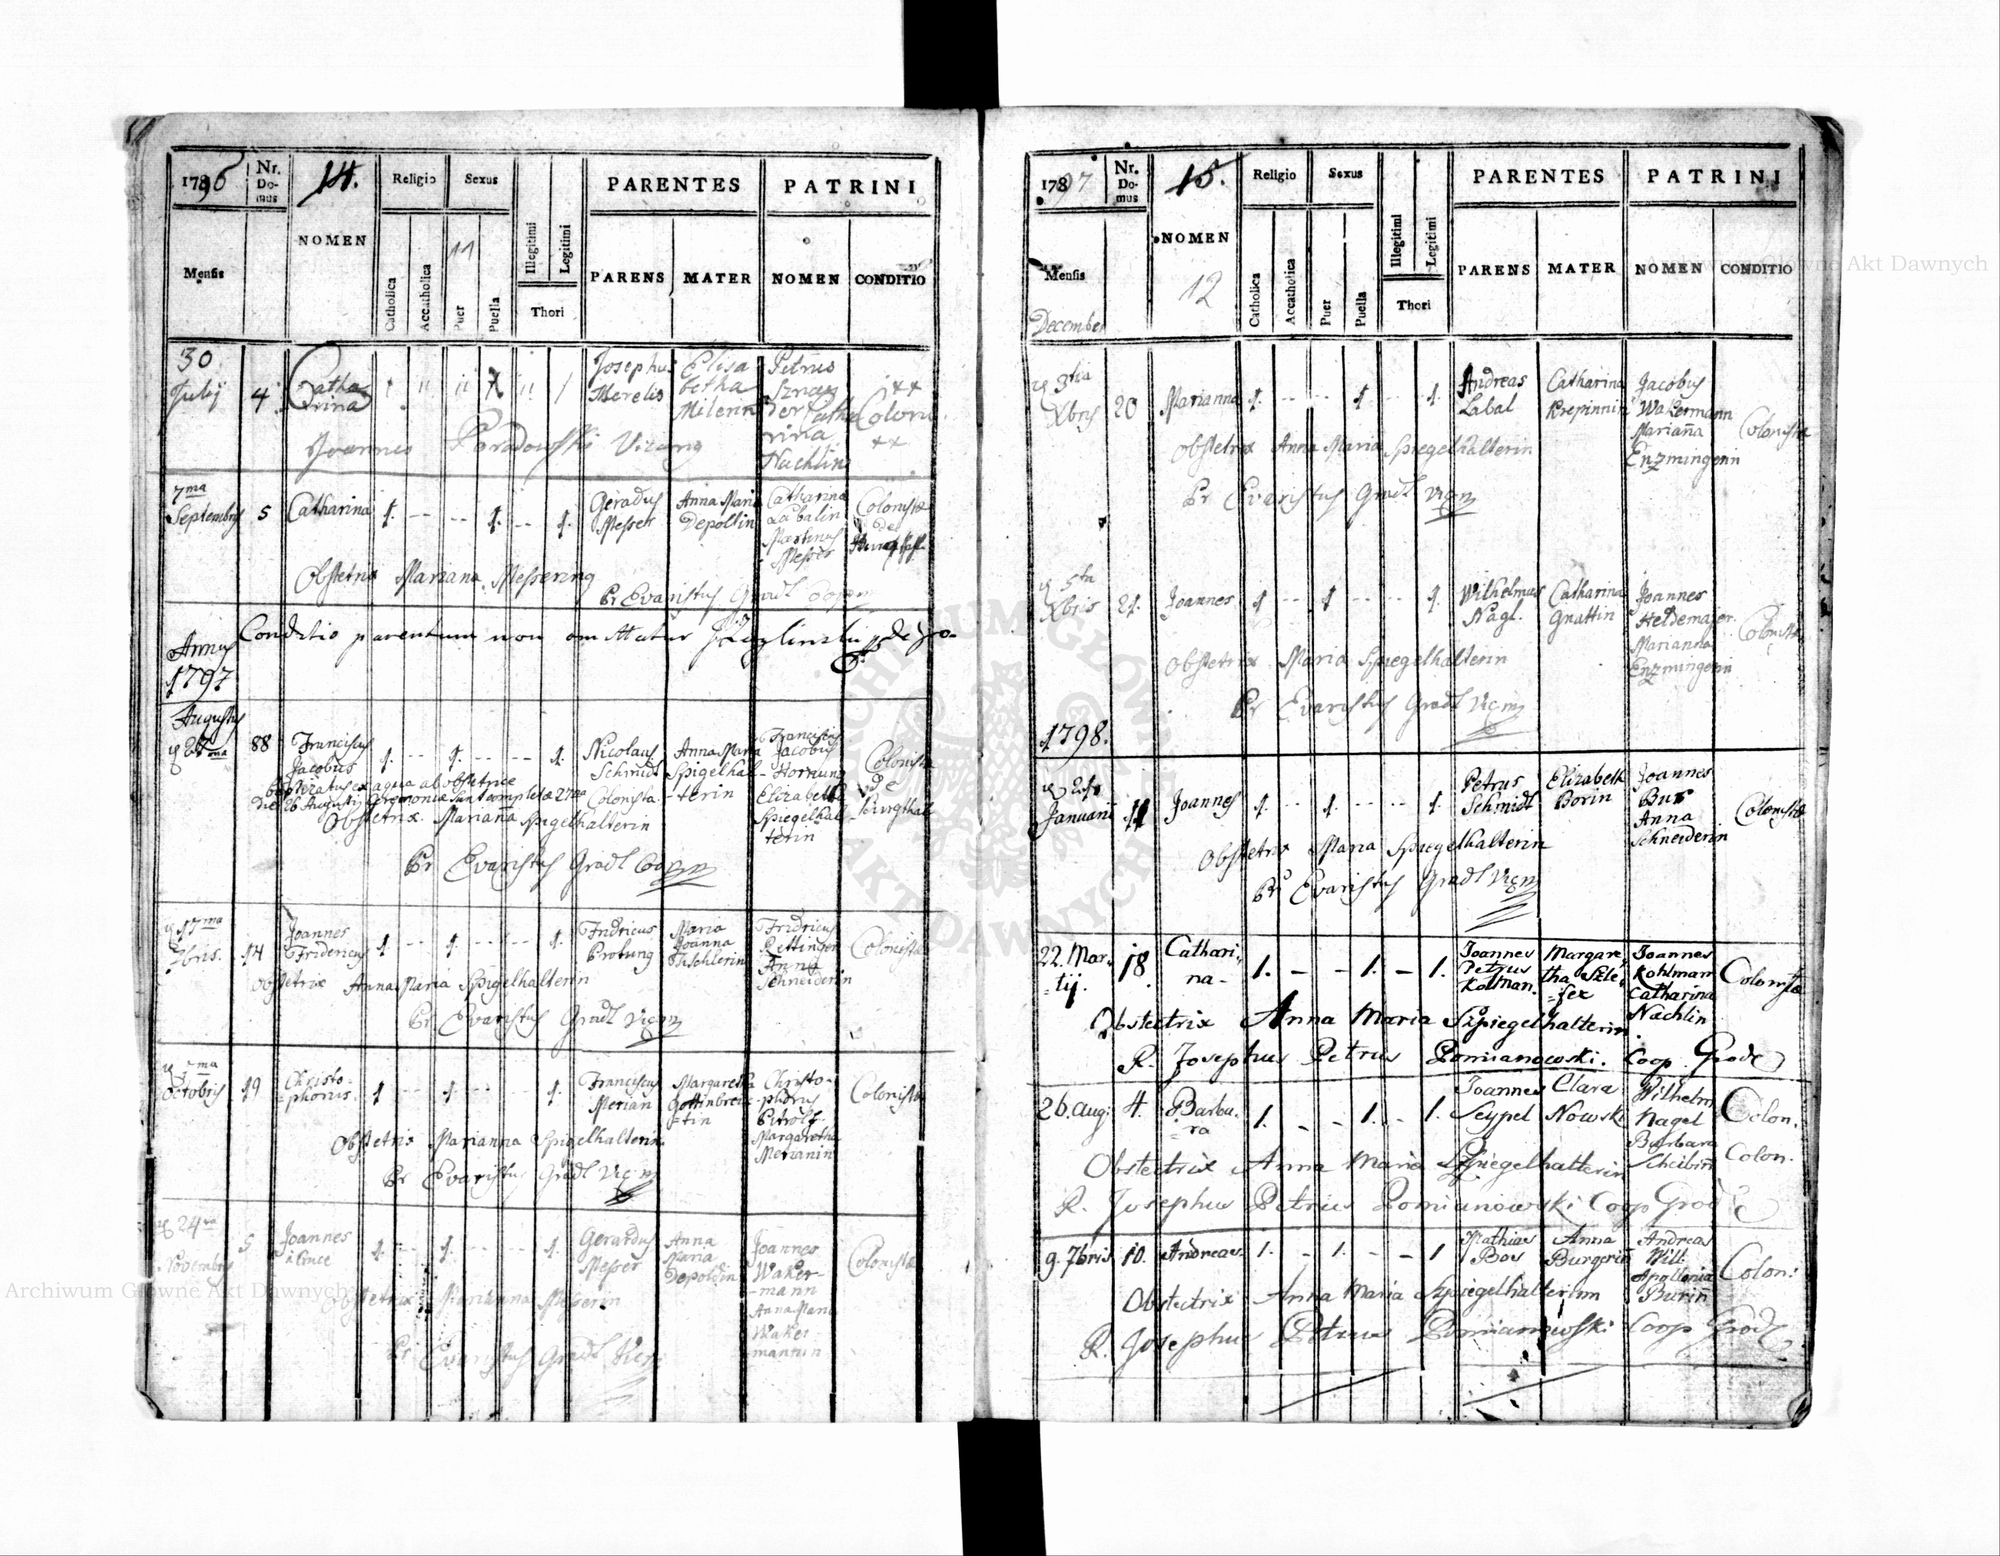 1796
Nr. Domus
14.
Religio
Sexus
PARENTES
PATRINI
Mensis
NOMEN
11
Catholica
Accatholica
Puer
Puella
Illegitimi
Legitimi
Thori
PARENS
MATER
NOMEN
CONDITIO
30 July
4
Catharina
Josephus Merelis
Elisabetha
Petrus
Catharina Nachlin
Joannes Paradowski
7ma Septembris
5
Catharina
1. -- -- 1. -- 1.
Geradus Messer
Anna Maria Depollin
Catharina
Martinus Messer
Colonistæ de
Obstetrix Mariana Messering
Pr Evaristus Gradl
Annus 1797
Conditio parentum non omittatur
Augustus
88
Franciscus Jacobus
1. -- 1. -- -- 1.
Nicolaus Schmidt Colonista
Anna Maria Spigelhalterin
Franciscus Jacobus Hornung
Elizabeth Spiegelhalterin
Colonistæ de
baptizatus ex aqua ab obstetrice
die 26 Augusti Ceremoniæ sunt completæ 27ma
Obstetrix Mariana Spigelhalterin
Pr Evaristus Gradl Coopm
17ma 7bris.
14
Joannes Fridericus
1. -- 1. -- -- 1.
Fridricus Protung
Maria Joanna Tischlerin
Fridricus Rettinger
Anna Schneiderin
Colonistæ
Obstetrix Anna Maria Spigelhalterin
Pr Evaristus Gradl Vicm
Octobris
19
Christophorus.
1. -- 1. -- -- 1.
Franciscus Merian
Margaretha Gottinbreitin
Christophorus Petrolf
Margaretha Meranin
Colonistæ
Obstetrix Marianna Spigelhalterin
Pr Evaristus Gradl Vicm
24ta Novembris
5
Joannes
1. -- 1. -- -- 1.
Gerardus Messer
Anna Maria Depoldin
Joannes Wakermann
Anna Maria Wakermannin
Colonistæ
Obstetrix Marianna
Pr Evaristus Gradl Vicm
1797
Nr. Domus
15.
Religio
Sexus
PARENTES
PATRINI
Mensis
December
NOMEN
12
Catholica
Accatholica
Puer
Puella
Illegitimi
Legitimi
Thori
PARENS
MATER
NOMEN
CONDITIO
3tia Xbris
20
Marianna
1. -- -- 1. -- 1.
Andreas Labal
Catharina Krepinnin
Jacobus Wakermann
Mariana Enzmingerin
Colonistæ
Obstetrix Anna Maria Spiegelhalterin
Pr Evaristus Gradl Vicm
5ta Xbris
21.
Joannes
1 -- 1 -- -- 1.
Wilhelmus Nagl.
Catharina Gnattin
Joannes Heldemajer
Marianna Enzmingerin
Colonistæ
Obstetrix Maria Spiegelhalterin
Pr Evaristus Gradl Vicm
1798.
21 Januarii
11
Joannes
1. -- 1. -- -- 1.
Petrus Schmidt
Elizabeth Borin
Joannes Bur
Anna Schneiderin
Colonistæ
Obstetrix Maria Spiegelhalterin
Pr Evaristus Gradl Vicm
22. Martij.
18
Catharina
1. - - 1. - 1.
Joannes Petrus Kolman.
Margaretha
Joannes Kohlman
Catharina Nachlin
Colonistæ
Obstectrix Anna Maria Szpiegelhalterin
R. Josephus Petrus Pomianowski. Coop Grode
26. Aug:
4.
Barbara
1. - - 1. - 1.
Joannes Seypel
Clara Nowsk
Wilhelm Nagel
Barbara Scheibin
Colon.
Colon.
Obstectrix Anna Maria Szpiegelhalterin
R. Josephus Petrus Pomianowski Coop Grode
9. 7bris
10.
Andreas
1. - 1. - - 1
Mathias Bos
Anna Burgerin
Andreas Will:
Apollonia Burin
Colon:
Obstectrix Anna Maria Szpiegelhalterinn
R. Josephus Petrus Pomianowski Coop Grode
ARCHIWUM GŁÓWNE AKT DAWNYCH
Archiwum Główne Akt Dawnych
Archiwum Główne Akt Dawnych